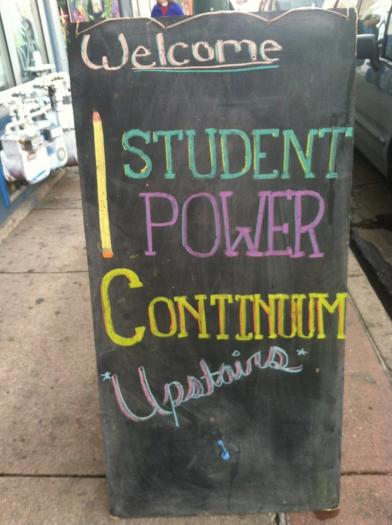 Welcome
STUDENT
POWER
CONTINUUM
*Upstairs*